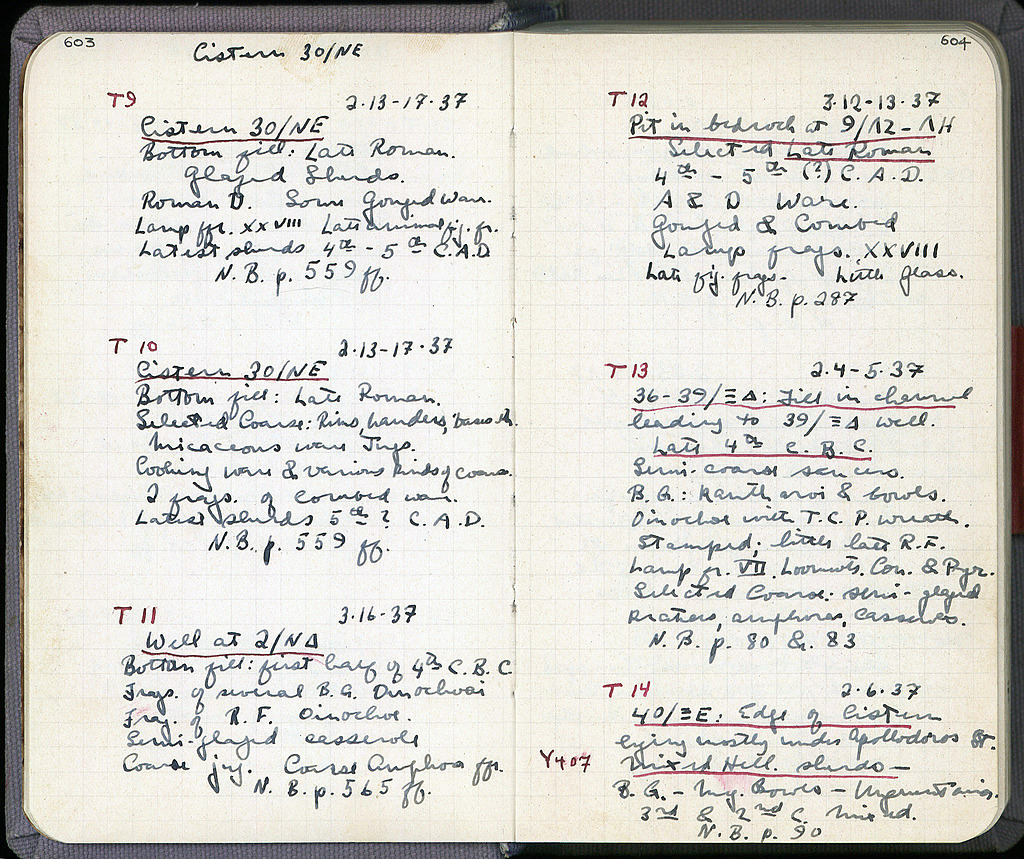 603
Cistern 30/NE
T9 2·13-17·37
Cistern 30/NE
Bottom fill: Late Roman.
Glazed Sherds.
Roman D. Some Gouged Ware.
Lamp fr. XXVIII Late animal fig. fr.
Latest sherds 4th - 5th C.A.D
N.B. p. 559 ff.
T 10 2·13-17·37
Cistern 30/NE
Bottom fill: Late Roman.
Selected Coarse: Rims, handles, bases etc.
Micaceous ware Jugs.
Cooking ware & various kinds of coarse.
2 frags. of combed ware.
Latest sherds 5th ? C.A.D.
N.B. p. 559 ff.
T 11 3·16-37
Well at 2/ΝΔ
Bottom fill: first half of 4th C.B.C.
Frags. of several B.G. Oinochoai
Frag. of R.F. Oinochoe.
Semi-glazed casserole
Coarse jug. Coarse Amphora frs.
N.B. p. 565 ff.
604
T 12 3·12-13·37
Pit in bedrock at 9/12-ΛΗ
Selected Late Roman
4th - 5th (?) C.A.D.
A & D Ware.
Gouged & Combed
Lamp frags. XXVIII
Late fig. frags. Little glass.
N.B. p. 287
T 13 2·4-5·37
36-39/ΞΔ: Fill in channel
leading to 39/ΞΔ well.
Late 4th C.B.C.
Semi-coarse saucers.
B.G.: Kantharoi & bowls.
Oinochoe with T.C.P. wreath.
Stamped; little late R.F.
Lamp fr. VII. Loomwts. Con. & Pyr.
Selected Coarse: semi-glazed
kraters, amphoras, casseroles.
N.B. p. 80 & 83
T 14 2·6·37
40/ΞΕ: Edge of Cistern
lying mostly under Apollodoros St.
Y407 Mixed Hell. sherds—
B.G. - Meg. Bowls -
3rd & 2nd C. mixed.
N.B. p. 90